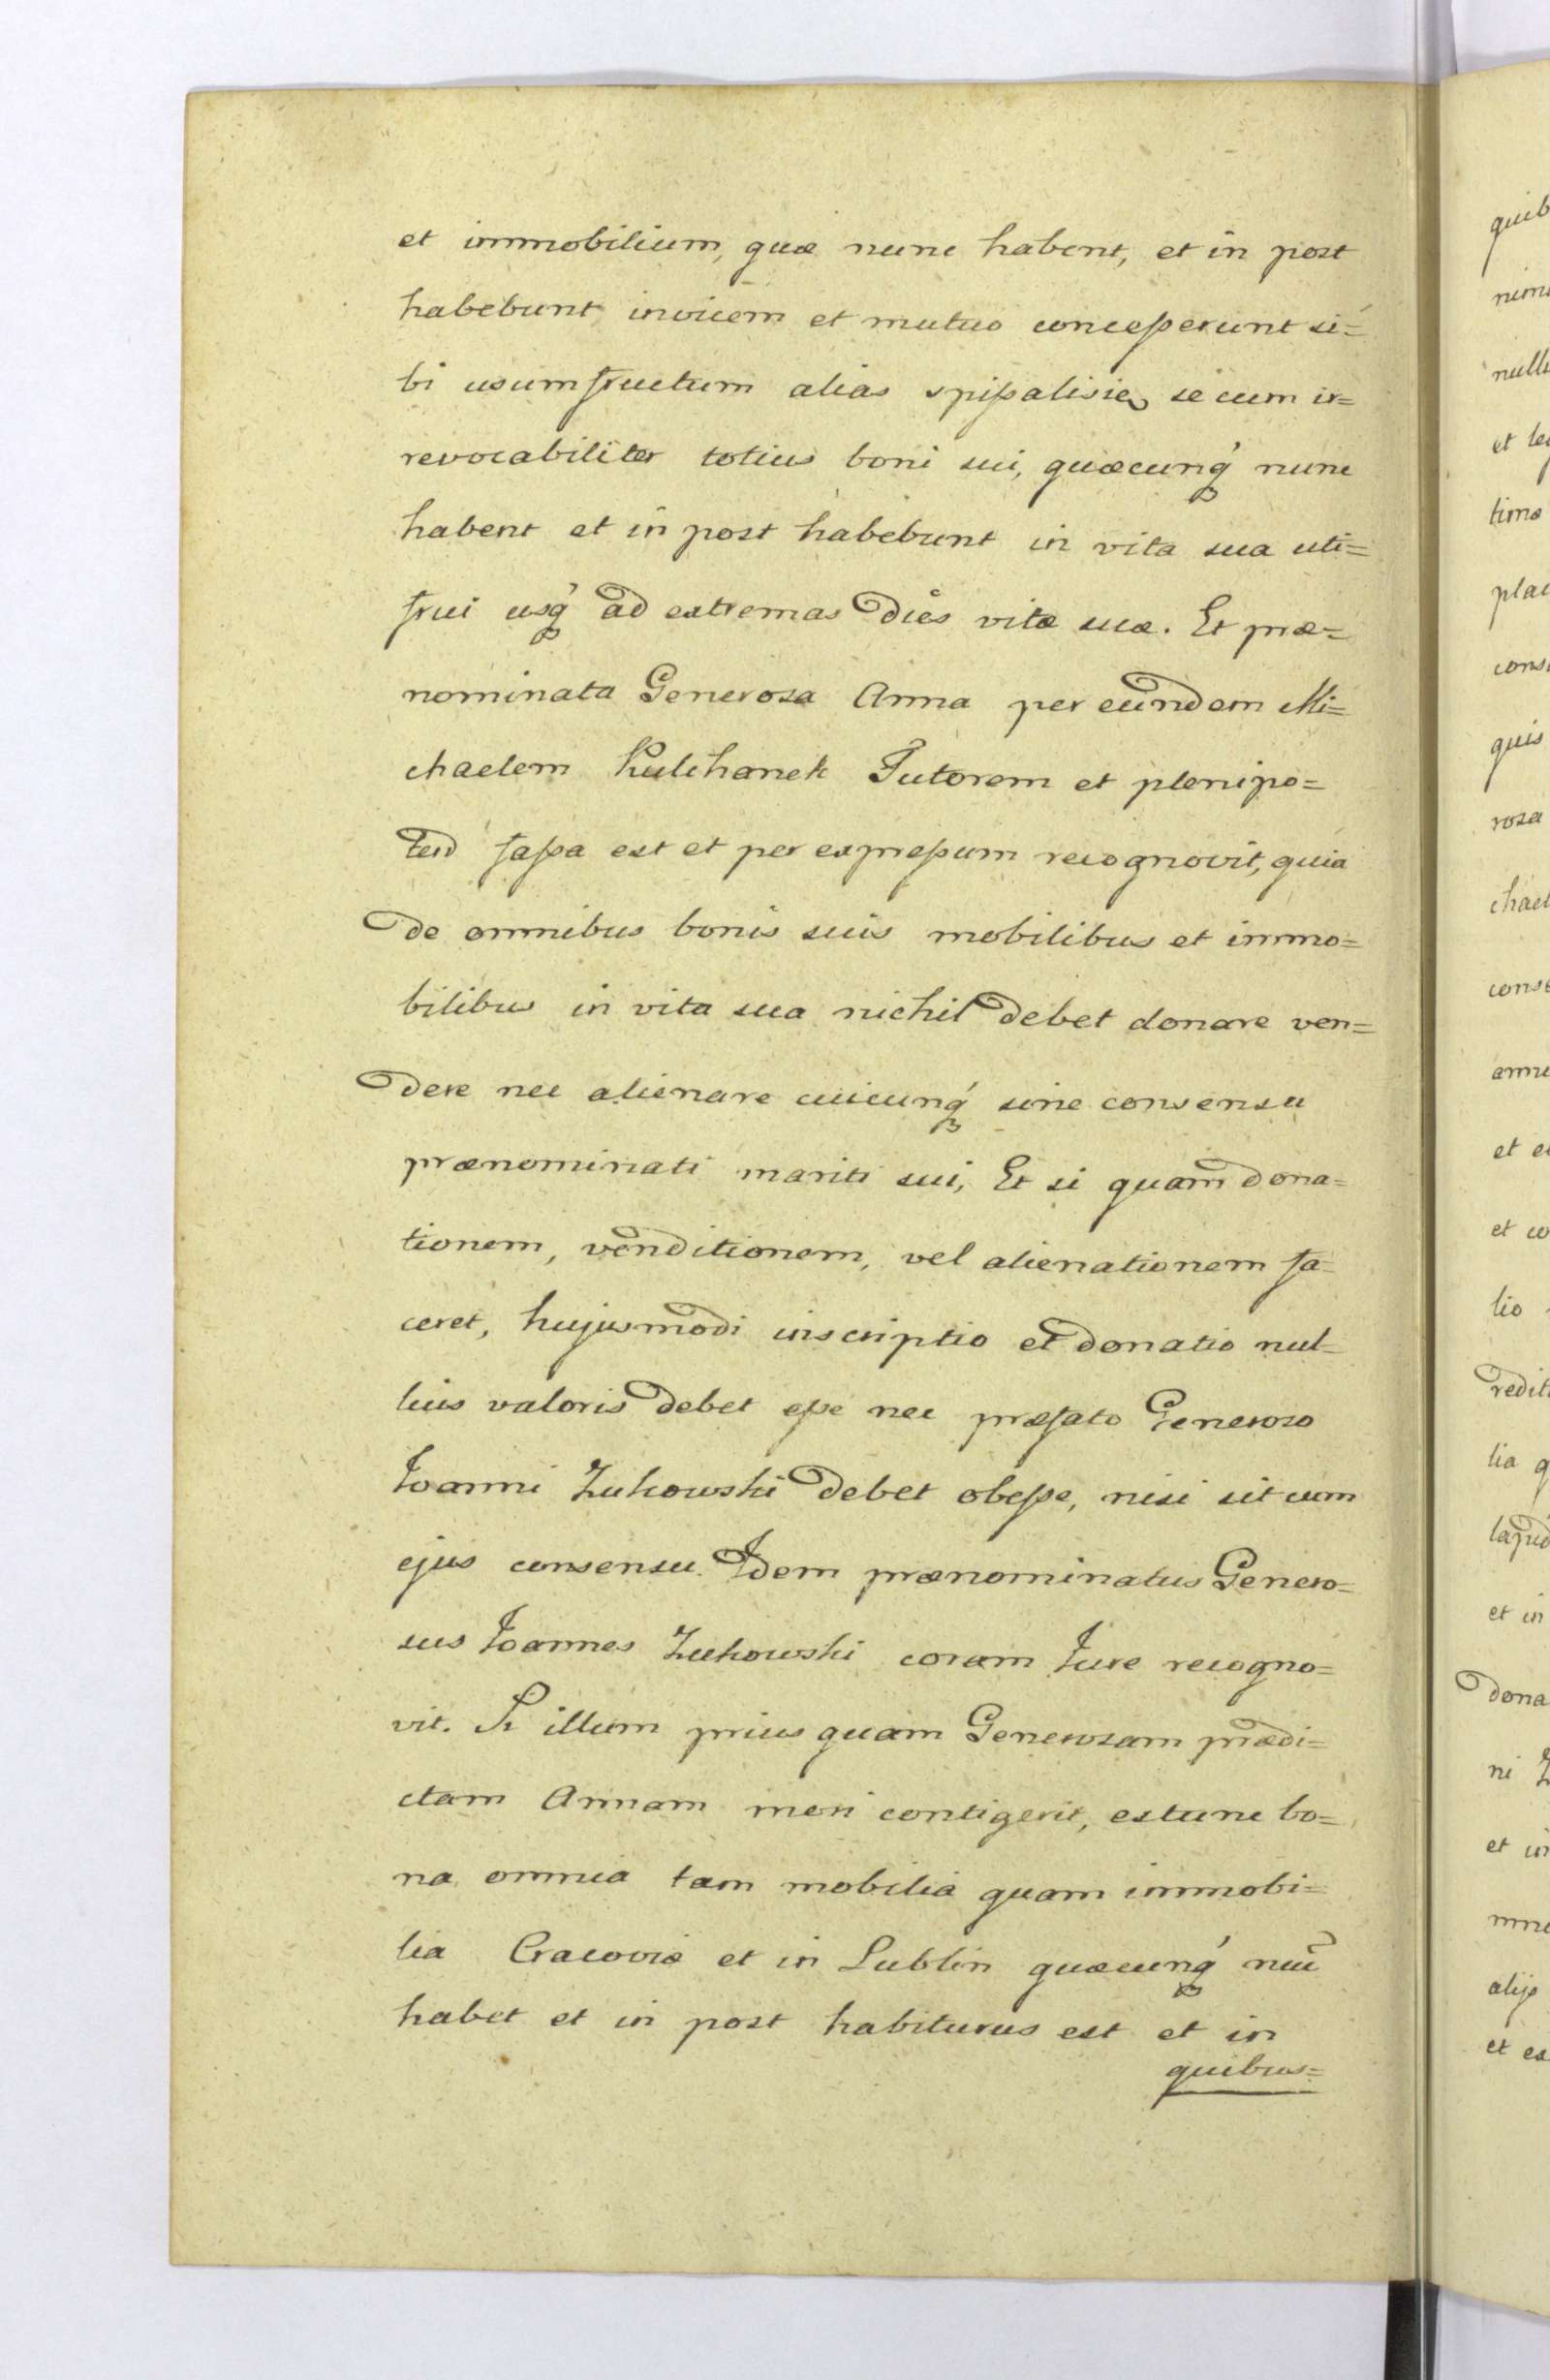 et immobilium, quæ nunc habent, et in post
habebunt invicem et mutuo concesserunt si=
bi usumfructum alias spissalisię secum ir=
revocabiliter totius boni sui, quæcunq́ nunc
habent et in post habebunt in vita sua uti=
frui usq́ ad extremas dies vitæ suæ. Et præ=
nominata Generosa Anna per eundem Mi=
chaelem Kulchanek Tutorem et plenipo=
ten fassa est et per expressum recognovit, quia
de omnibus bonis suis mobilibus et immo=
bilibus in vita sua nichil debet donare ven=
dere nec alienare cuicunq́ sine consensu
prænominati mariti sui, Et si quam dona=
tionem, venditionem, vel alienationem fa=
ceret, hujusmodi inscriptio et donatio nul=
lius valoris debet esse nec præfato Generoso
Joanni Zukowski debet obesse, nisi sit cum
ejus consensu. Idem prænominatus Genero=
sus Joannes Zukowski coram Jure recogno=
vit. Si illum prius quam Generosam prædi=
ctam Annam mori contigerit, extunc bo=
na omnia tam mobilia quam immobi=
lia Cracoviæ et in Lublin quæcunq́ nũc
habet et in post habiturus est et in
quibus=
quib
nim
null
et le
time
pla
cons
quis
rosa
chael
conse
annu
et e
et co
lio
redit
lia q
lapid
et in
dona
ni Z
et in
mne
alijs
et ex